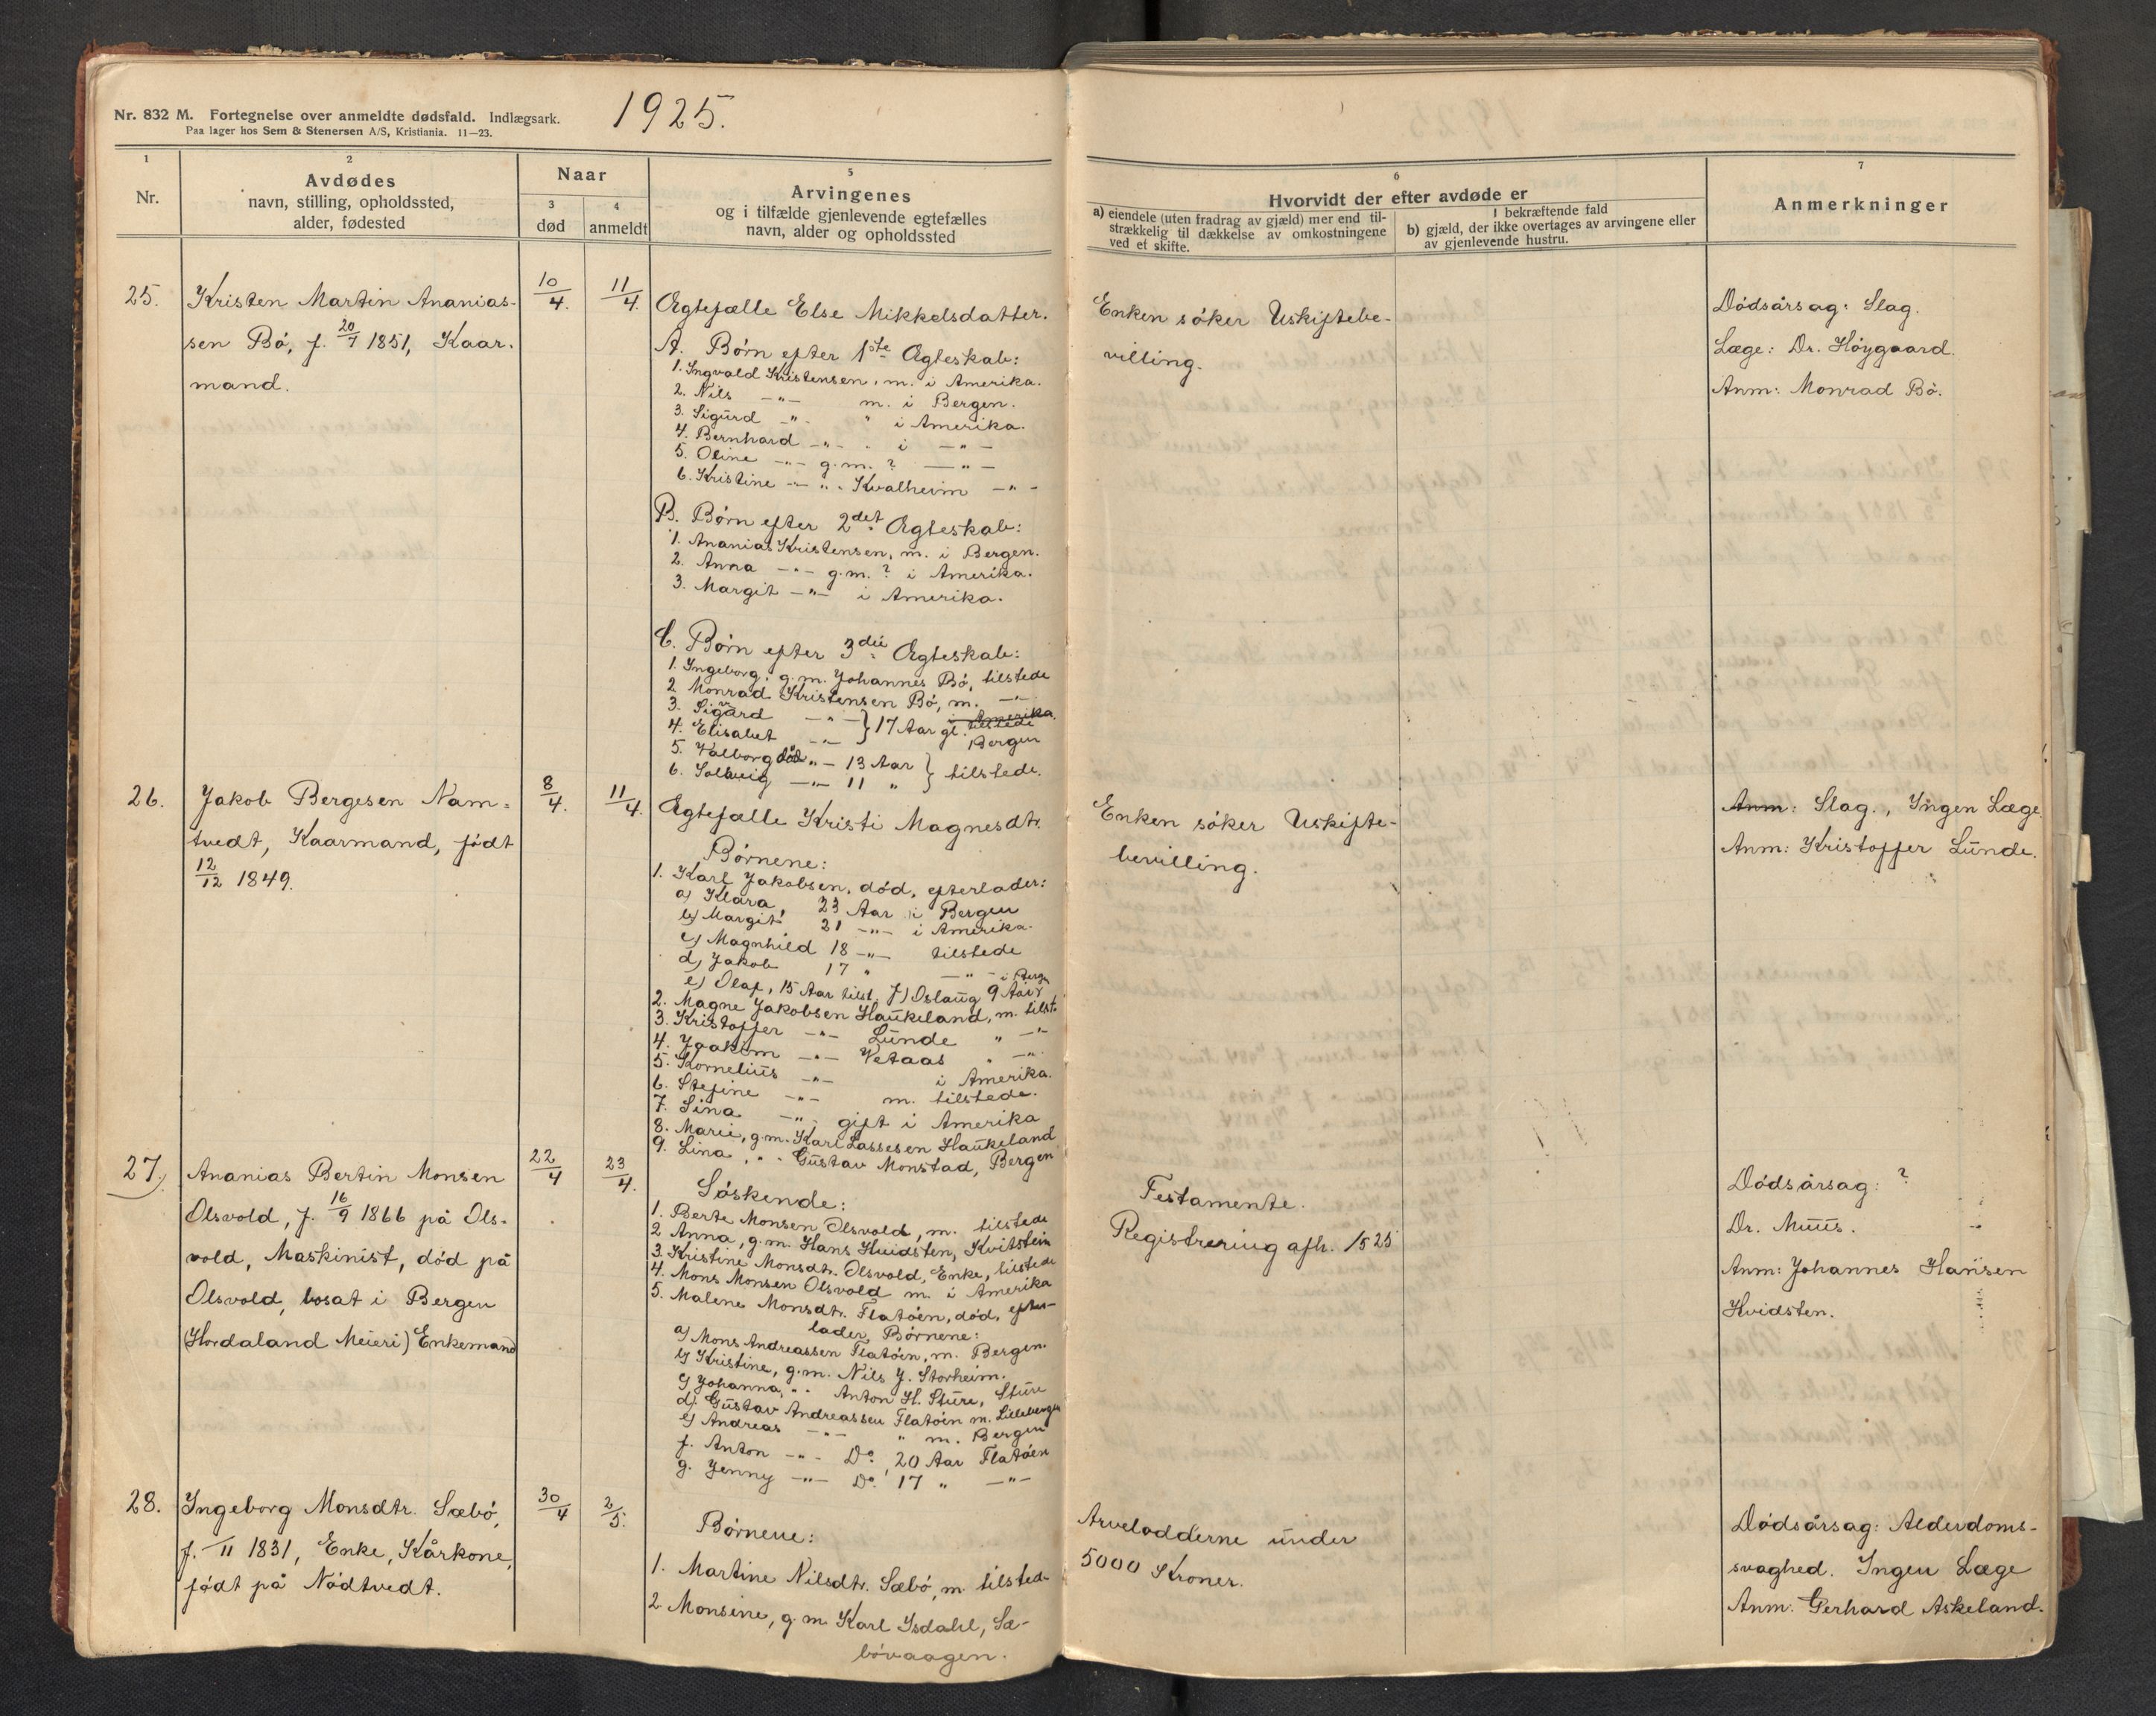 Nr. 832 M. Fortegnelse over anmeldte dødsfald. Indlægsark.
Paa lager hos Sem & Stenersen A/S, Kristiania. 11—23.
1925.
1
Nr.
2
Avdødes
navn, stilling, opholdssted,
alder, fødested
Naar
3
død
4
anmeldt
5
Arvingenes
og i tilfælde gjenlevende egtefælles
navn, alder og opholdssted
6
Hvorvidt der efter avdøde er
a) eiendele (uten fradrag av gjæld) mer end til-
strækkelig til dækkelse av omkostningene
ved et skifte.
I bekræftende fald
b) gjæld, der ikke overtages av arvingene eller
av gjenlevende hustru.
7
Anmerkninger
25.
Kristen Martin Ananias-
sen Bö, f. 20/7 1851, Kaar-
mand.
10/4.
11/4.
Ægtefælle Else Mikkelsdatter.
A. Børn efter 1ste Ægteskab:
1. Ingvald Kristensen, m. i Amerika.
2. Nils —"— m. i Bergen.
3. Sigurd " " i Amerika.
4. Bernhard —"— " i —"—
5. Oline —"— g.m. ? —"—
6. Kristine —"— " Kvalheim —"—
B. Børn efter 2det Ægteskab:
1. Ananias Kristensen, m. i Bergen.
2. Anna —"— g.m. ? i Amerika.
3. Margit —"— i Amerika.
C. Børn efter 3die Ægteskab:
1. Ingeborg, g.m. Johannes Bö, tilstede
2. Monrad Kristensen Bö, m. —"—
3. Sigvard —"— } 17 Aar gl. Amerika. tilstede
4. Elisabet —"— Bergen
5. Valborg död —"— 13 Aar } tilstede.
6. Solveig —"— 11 "
Enken söker Uskiftebe-
villing.
Dödsårsag: Slag.
Læge: Dr. Höygaard.
Anm: Monrad Bö.
26.
Jakob Bergesen Nam-
tvedt, Kaarmand, født
12/12 1849.
8/4.
11/4.
Ægtefælle Kristi Magnesdtr.
Børnene:
1. Karl Jakobsen, död, efterlader:
a) Klara, 23 Aar i Bergen
b) Margit 21 —"— i Amerika.
c) Magnhild 18 —"— tilstede
d) Jakob 17 " —"— i Bergen
e) Olaf, 15 Aar tilst. f) Oslaug 9 Aar
2. Magne Jakobsen Haukeland, m. tilst.
3. Kristoffer —"— Lunde " —"—
4. Joakim —"— Vetaas " —"—
5. Kornelius —"— i Amerika.
6. Stefine —"— m. tilstede.
7. Sina —"— gift i Amerika
8. Marie, g.m. Karl Lassesen Haukeland
9. Lina, " " Gustav Monstad, Bergen
Enken söker Uskifte-
bevilling.
Anm: Slag., Ingen Læge
Anm: Kristoffer Lunde.
27.
Ananias Bertin Monsen
Olsvold, f. 16/9 1866 på Ols-
vold, Maskinist, död på
Olsvold, bosat i Bergen
(Hordaland Meieri) Enkemand
22/4
23/4.
Söskende:
1. Berte Monsen Olsvold, m. tilstede
2. Anna, g.m. Hans Hvidsten, Kvitstein
3. Kristine Monsdtr. Olsvold, Enke, tilstede
4. Mons Monsen Olsvold m. i Amerika
5. Malene Monsdtr. Flatöen, död, efter-
lader, Börnene:
a) Mons Andreassen Flatöen, m. Bergen.
b) Kristine, g.m. Nils J. Storheim.
c) Johanna, " " Anton H. Sture, Sture
d) Gustav Andreassen Flatöen m. Lillebergen
e) Andreas —"— " m. Bergen
f. Anton —"— Do. 20 Aar Flatöen
g. Jenny —"— Do. 17 " —"—
Testamente.
Registrering afh. 15 25
Dödsårsag: ?
Dr. Muus.
Anm: Johannes Hansen
Hvidsten.
28.
Ingeborg Monsdtr. Sæbö,
f. —/11 1831, Enke, Kårkone,
født på Nödtvedt.
30/4
2/5.
Børnene:
1. Martine Nilsdtr. Sæbö, m. tilsted-
2. Monsine, g.m. Karl Isdahl, Sæ-
bövaagen.
Arvelodderne under
5000 Kroner.
Dödsårsag: Alderdoms-
svaghed. Ingen Læge
Anm: Gerhard Askeland.